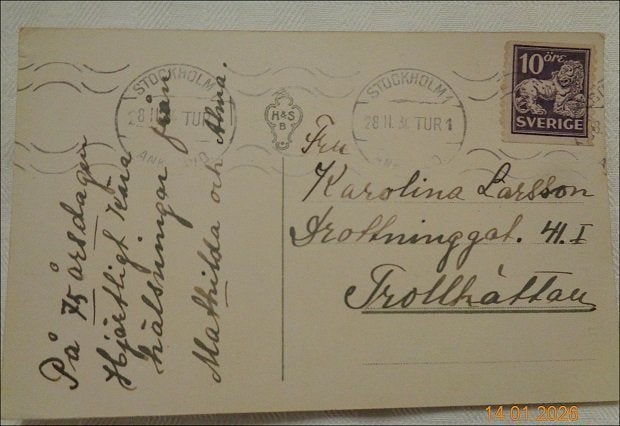 På 75 årsdagen
Hjärtligt kära
hälsningar från
Mathilda och Alma.
STOCKHOLM 1
28 11. 3 TUR 1
ANK
STOCKHOLM 1
28 11. 3 TUR 1
ANK
H&S
B
10 ÖRE
SVERIGE
Fru
Karolina Larsson
Drottninggat. 41. I
Trollhättan
14.01.2026